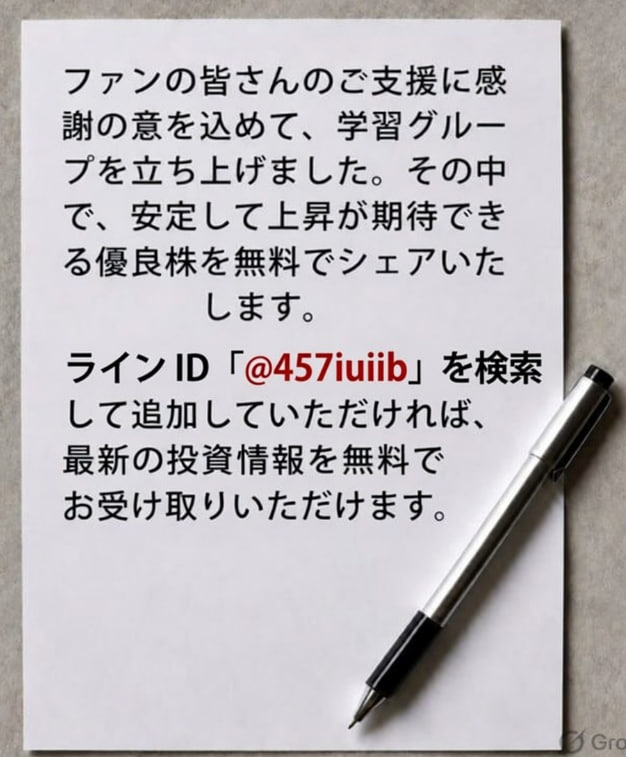 ファンの皆さんのご支援に感
謝の意を込めて、学習グルー
プを立ち上げました。その中
で、安定して上昇が期待でき
る優良株を無料でシェアいた
します。
ライン ID「@457iuiib」を検索
して追加していただければ、
最新の投資情報を無料で
お受け取りいただけます。